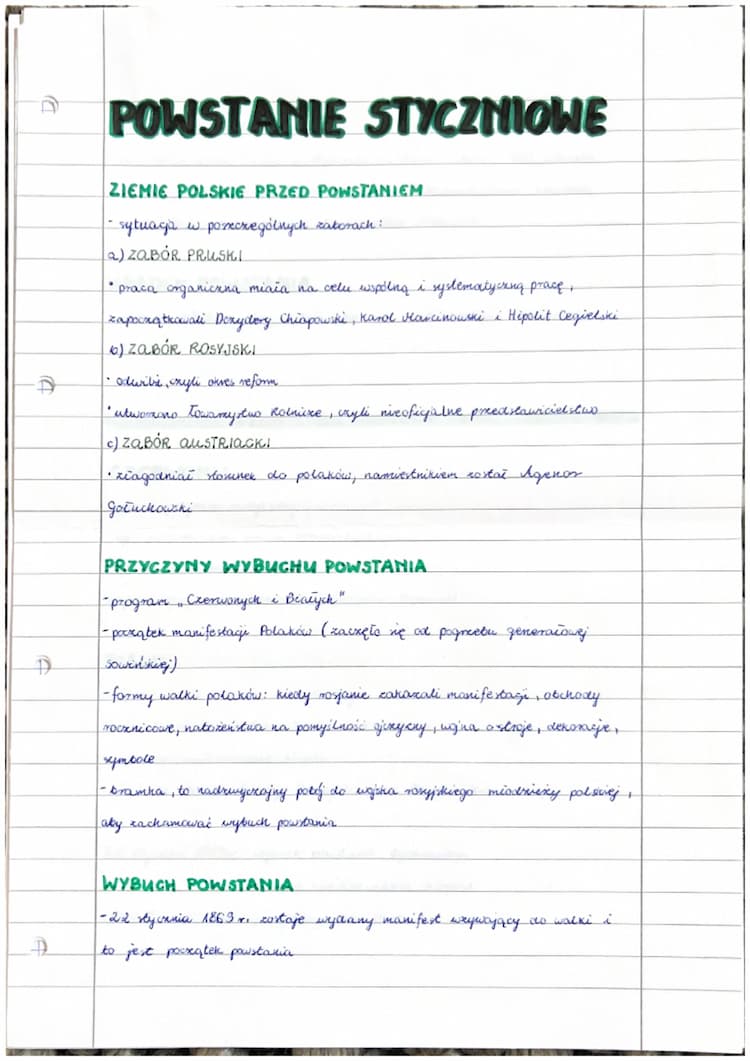 POWSTANIE STYCZNIOWE
ZIEMIE POLSKIE PRZED POWSTANIEM
- sytuacja w poszczególnych zaborach:
a) ZABÓR PRUSKI
• praca organiczna miała na celu wspólną i systematyczną pracę,
zapoczątkowali Dezydery Chłapowski, Karol Marcinowski i Hipolit Cegielski
b) ZABÓR ROSYJSKI
• odwilż, czyli okres reform
• utworzono Towarzystwo Rolnicze, czyli nieoficjalne przedstawicielstwo
c) ZABÓR AUSTRIACKI
• złagodniał stosunek do polaków, namiestnikiem został Agenor
Gołuchowski
PRZYCZYNY WYBUCHU POWSTANIA
- program „Czerwonych i Białych"
- początek manifestacji Polaków (zaczęło się od pogrzebu generałowej
Sowińskiej)
- formy walki polaków: kiedy rosjanie zakazali manifestacji, obchody
rocznicowe, nabożeństwa na pomyślność ojczyzny, wojna o stroje, dekoracje,
symbole
- branka, to nadzwyczajny pobój do wojska rosyjskiego młodzieży polskiej,
aby zachamować wybuch powstania
WYBUCH POWSTANIA
- 22 stycznia 1863 r. zostaje wydany manifest wzywający do walki i
to jest początek powstania